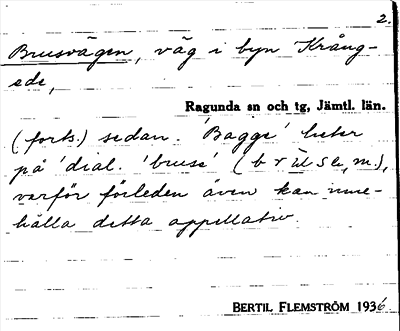 2.
Brusvägen, väg i byn Krång-
ede,
Ragunda sn och tg, Jämtl. län.
(forts.) sedan. 'Bagge' heter
på 'dial. 'bruse' (
varför förleden även kan inne-
hålla detta appellativ.
BERTIL FLEMSTRÖM 1936.